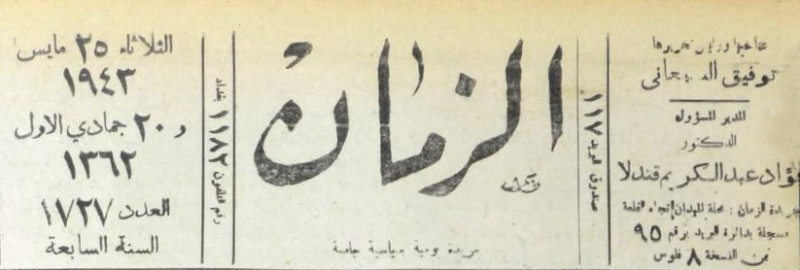 صاحبها ورئيس تحريرها
توفيق السمعاني
المدير المسؤول
الدكتور
فؤاد عبد الكريم قندلا
جريدة الزمان : محلة الميدان تجاه القلعة
مسجلة بدائرة البريد برقم ٩٥
ثمن النسخة ٨ فلوس
صندوق البريد ١١٧
الزمان
جريدة يومية سياسية جامعة
بغداد
رقم التلفون ١١٨٢
الثلاثاء ٢٥ مايس
١٩٤٣
و ٢٠ جمادي الاول
١٣٦٢
العدد ١٧٢٧
السنة السابعة